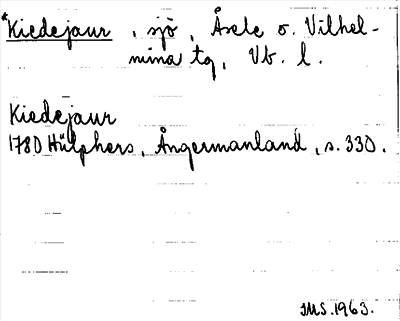 *Kiedejaur, sjö, Åsele o. Vilhel-
mina tg, Vb. l.
Kiedejaur
1780 Hülphers, Ångermanland, s. 330.
IMS. 1963.